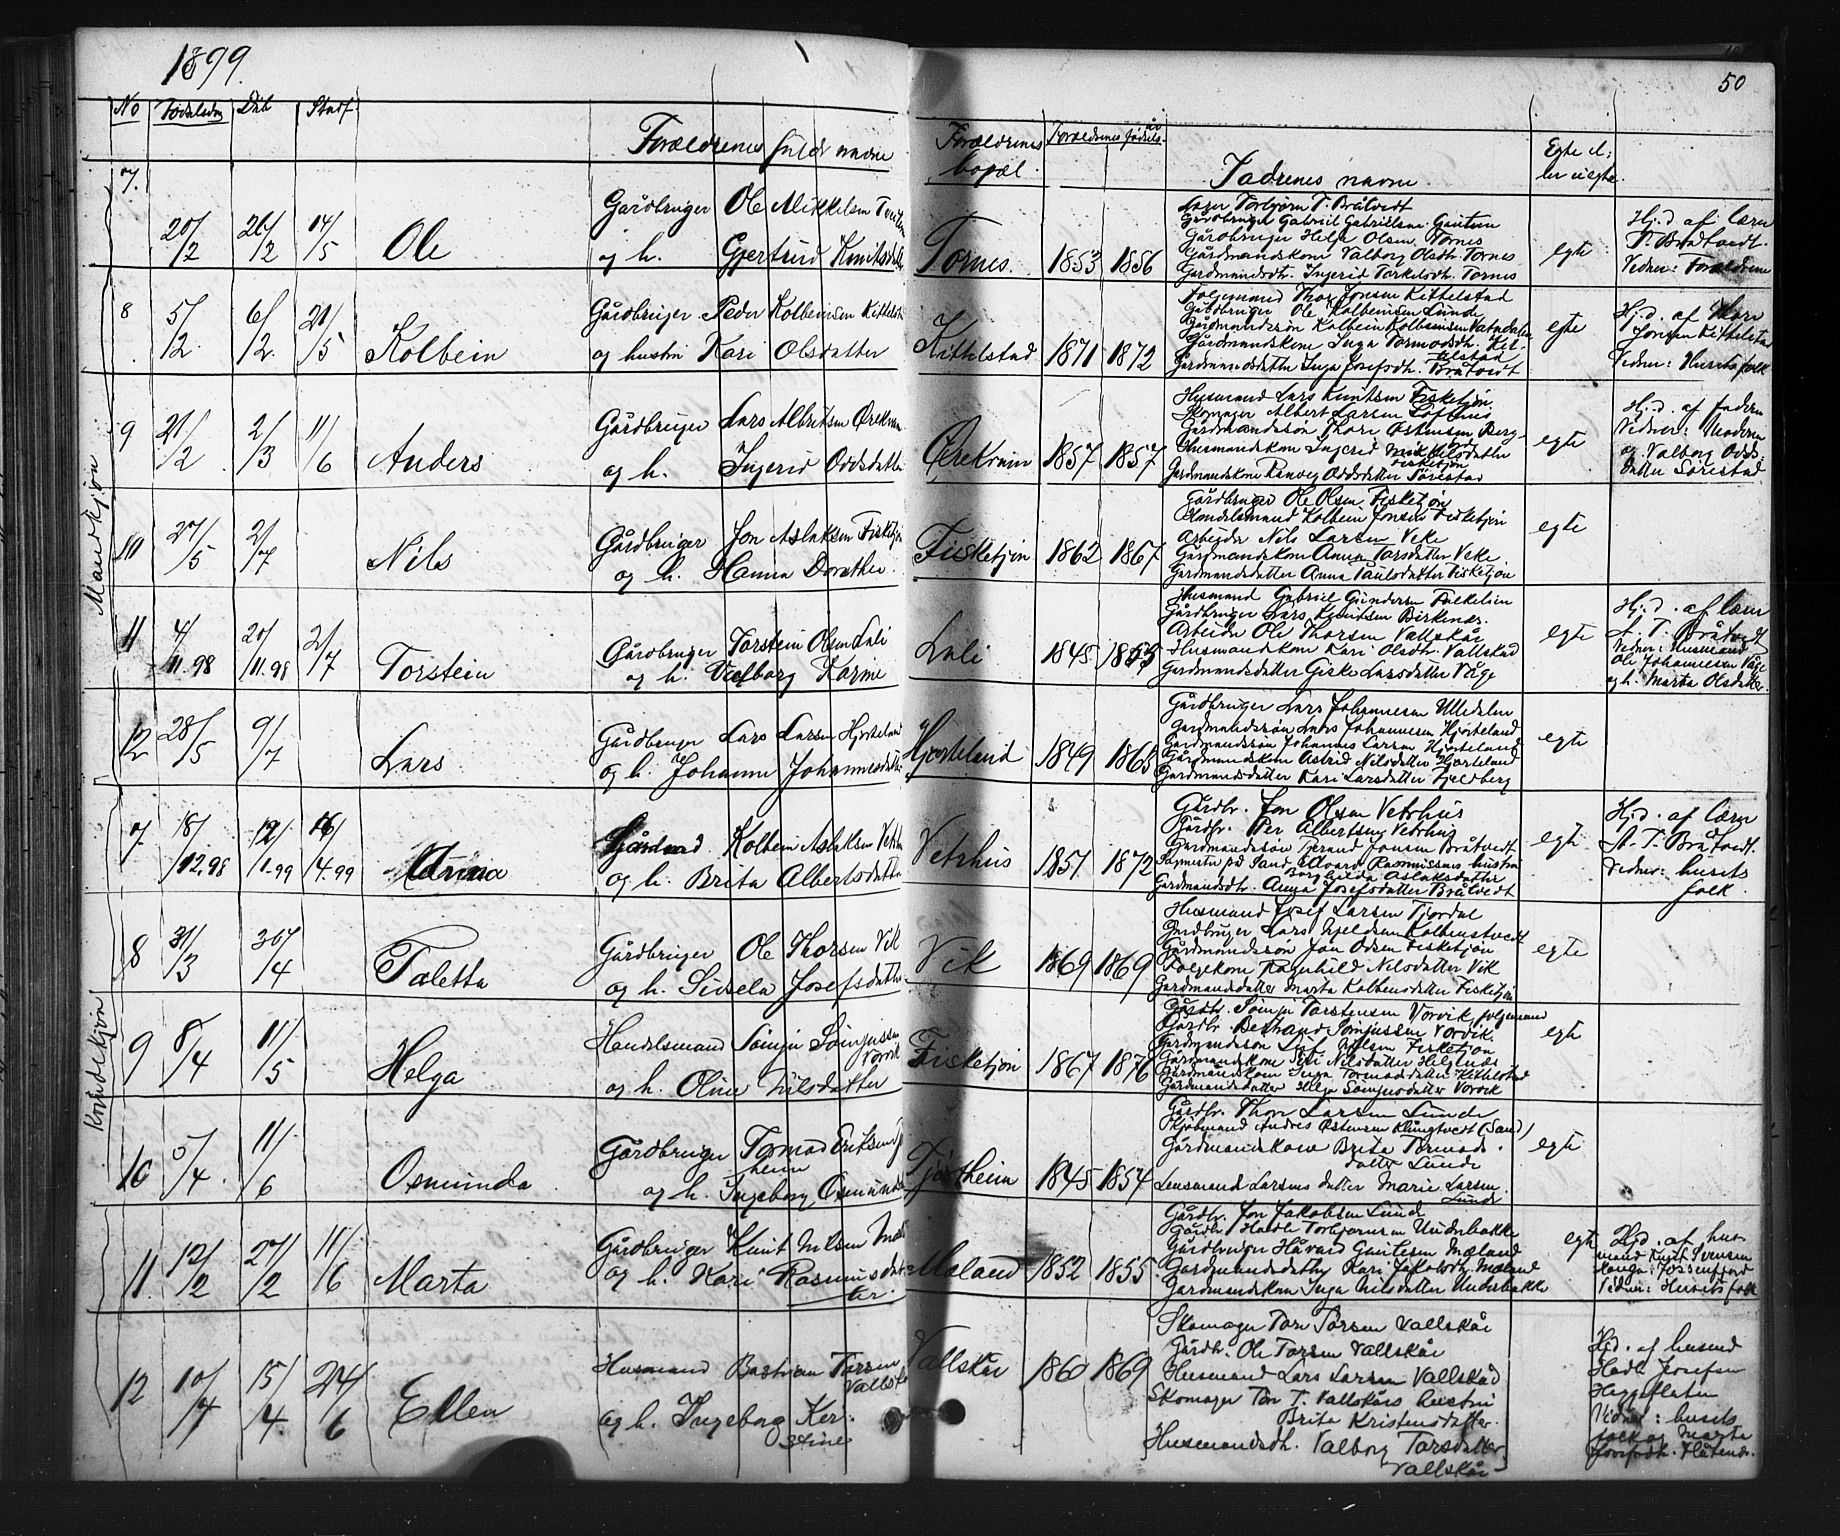 1899.
50
No Fødselsdag Dåb Stadf.
Forældrenes fulde navne
Forældrenes bopæl.
Forældrenes fødselsår
Fadrenes navne
Egte el:
ler uegte.
Mandkjøn
7.
20/2 26/2 14/5 Ole
Gårdbruger Ole Mikkelsen
og h. Gjertrud
Tornes. 1853 1856
Torbjørn T. Bråtvedt
Gårdbruger Gabriel Gabrielsen
Gårdbruger Helge Olsen Tornes
Gårdmandskone Valborg Olsdtr. Tornes
Gardmandsdtr. Ingerid Torkelsdtr. Tornes
egte
Hjd. af lærer
T. Bråtvedt.
Vidner: Forældrene
8
5/2 6/2. 21/5 Kolbein
Gårdbruger Peder Kolbeinsen
og hustru Kari Olsdatter
Kittelstad 1871 1872
Folgemand Thor Jonsen Kittelstad
Gårdbruger Ole Kolbeinsen Lunde
Gårdmandssøn Kolbein Kolbeinsen Vatndalen
Gårdmandskone Inga Tormodsdtr. Kit-
telstad
Gardmandsdatter Inga Josefsdtr. Bråtvedt
egte
Hjd. af Thor
Jonsen Kittelstad
Vidner: Husets folk
9
21/2 2/3 11/6 Anders
Gårdbruger Lars Albertsen
og h. Ingerid Oddsdatter
Ørekvam 1857 1857
Husmand Lars Knutsen Fisketjøn
Skomager Albert Larsen Lofthus
Gårdmandssøn Thore Østensen Berg-
Husmandskone Ingerid Mikkelsdatter
Fisketjøn
Gardmandskone Ranveig Oddsdatter Sørestad
egte
Hjd. af faderen
Vidner: Moderen
og Valborg Odds-
datter Sørestad
10
27/5 2/7 Nils
Gårdbruger Jon Aslaksen Fisketjøn
og h. Hanna Dorothea.
Fisketjøn 1862 1867
Gårdbruger Ole Olsen Fisketjøn
Handelsmand Kolbein Jonsen Fisketjøn
Arbeider Nils Larsen Veke
Gårdmandskone Anna Larsdatter Veke
Gardmandsdatter Anna Paulsdatter Fisketjøn
egte
11
4/11.98 20/11.98 2/7 Torstein
Gårdbruger Torstein Olsen Lali
og h. Valborg Karine
Lali 1845 1853
Husmand Gabriel Gundersen
Gårdbruger Lars Knutsen Birkenæs.
Arbeider Ole Thorsen Vallskår
Husmandskone Kari Olsdtr. Vallskår
Gardmandsdatter Giske Larsdatter Våge
egte
Hjd. af lærer
A. T. Bråtvedt
Vidner: Husmand
Ole Johannesen Våge
og h. Marta Olsdatter.
12
28/5 9/7 Lars
Gårdbruger Lars Larsen Hjorteland
og h. Johanne Johannesdatter
Hjorteland 1849 1865
Gårdbruger Lars Johannesen Ulledalen
Gardmandssøn Lars Johannesen Hjorteland
Gårdmandssøn Johannes Larsen Hjorteland
Gårdmandskone Astrid Nilsdatter Hjorteland
Gardmandsdatter Kari Larsdatter Fjeldberg
egte
Kvindekjøn
7
18/12.98 12/1.99 16/4.99 Anna
Gårdmand Kolbein Aslaksen
og h. Brita Albertsdatter
Vetrhus 1857 1872
Gårdbr. Jon Olsen Vetrhus
Gårdbr. Per Albertsen Vetrhus
Gårdmandssøn Tjerand Jonsen Bråtvedt
på Sand Edvard Rasmussens hustru
Borghilda Aslaksdatter
Gardmandsdtr. Anna Josefsdatter Bråtvedt
egte
Hjd. af lærer
A. T. Bråtvedt.
Vidner: husets
folk.
8
31/3 30/4 Taletta
Gårdbruger Ole Thorsen Vik
og h. Sissela Josefsdatter
Vik 1869 1869
Husmand Josef Larsen Tjordal
Gårdbruger Lars Kjeldsen Kolbenstvedt
Gårdmandssøn Jon Odsen Fisketjøn
Folgekone Ragnhild Nilsdatter Vik
Gardmandsdatter Marta Kolbeinsdatter Fisketjøn
egte
9
8/4 11/5 Helga
Handelsmand Sømju Sømjussen
Vorvik
og h. Oline Nilsdatter
Fisketjøn 1867 1876
Gårdbr. Sømju Torstensen Vorvik, folgemand
Gårdbr. Bertrand Sømjussen Vorvik.
Gårdmandssøn Nilsen Fisketjøn
Gårdmandskone Nilsdatter
Gårdmandskone Inga Tormodsdatter Kittelstad
Gårdmandsdatter Helga Sømjusdatter Vorvik
egte
10
5/4. 11/6 Osmunda
Gårdbruger Tormod Eriksen
heim
og h. Ingeborg Osmunds
Tjøstheim 1845 1854
Gårdbr. Thore Larsen Lunde
Kjøbmand Andres Østensen Klungtvedt (Sand)
Gårdmandskone Brita Tormods-
datter Lunde
Lensmand Larsens datter Marie Larsen
Lunde
egte
11
12/2 27/2 11/6 Marta
Gårdbruger Knut Nilsen
og h. Kari Rasmusdat-
ter.
Mæland 1852 1855
Gårdbr. Jon Jakobsen Lunde
Gårdbr. Halvor Torbjørnsen Underbakke
Gårdbruger Håvard Gautesen Mæland
Gardmandsdatter Kari Jakobsdtr. Mæland
Gardmandskone Inga Nilsdatter Underbakke
egte
Hjd. af hus-
mand Knut Svensen
Hauga: Jøssenfjord
Vidner: Husets folk
12
10/4 15/4 24/6 Ellen
Husmand Bastian Torsen
Vallskår
og h. Ingeborg Ker-
stine
Vallskår 1860 1869
Skomager Tor Torsen Vallskår
Gårdbr. Ole Torsen Vallskår
Husmand Lars Larsen Vallskår
Skomager Tor T. Vallskårs hustru
Brita Kristensdatter.
Husmandsdtr. Valborg Torsdatter
Vallskår
Hjd. af husmand
Hadle Josefsen
Heggeflaten
Vidner: husets
folk og Marta
Josefsdtr.